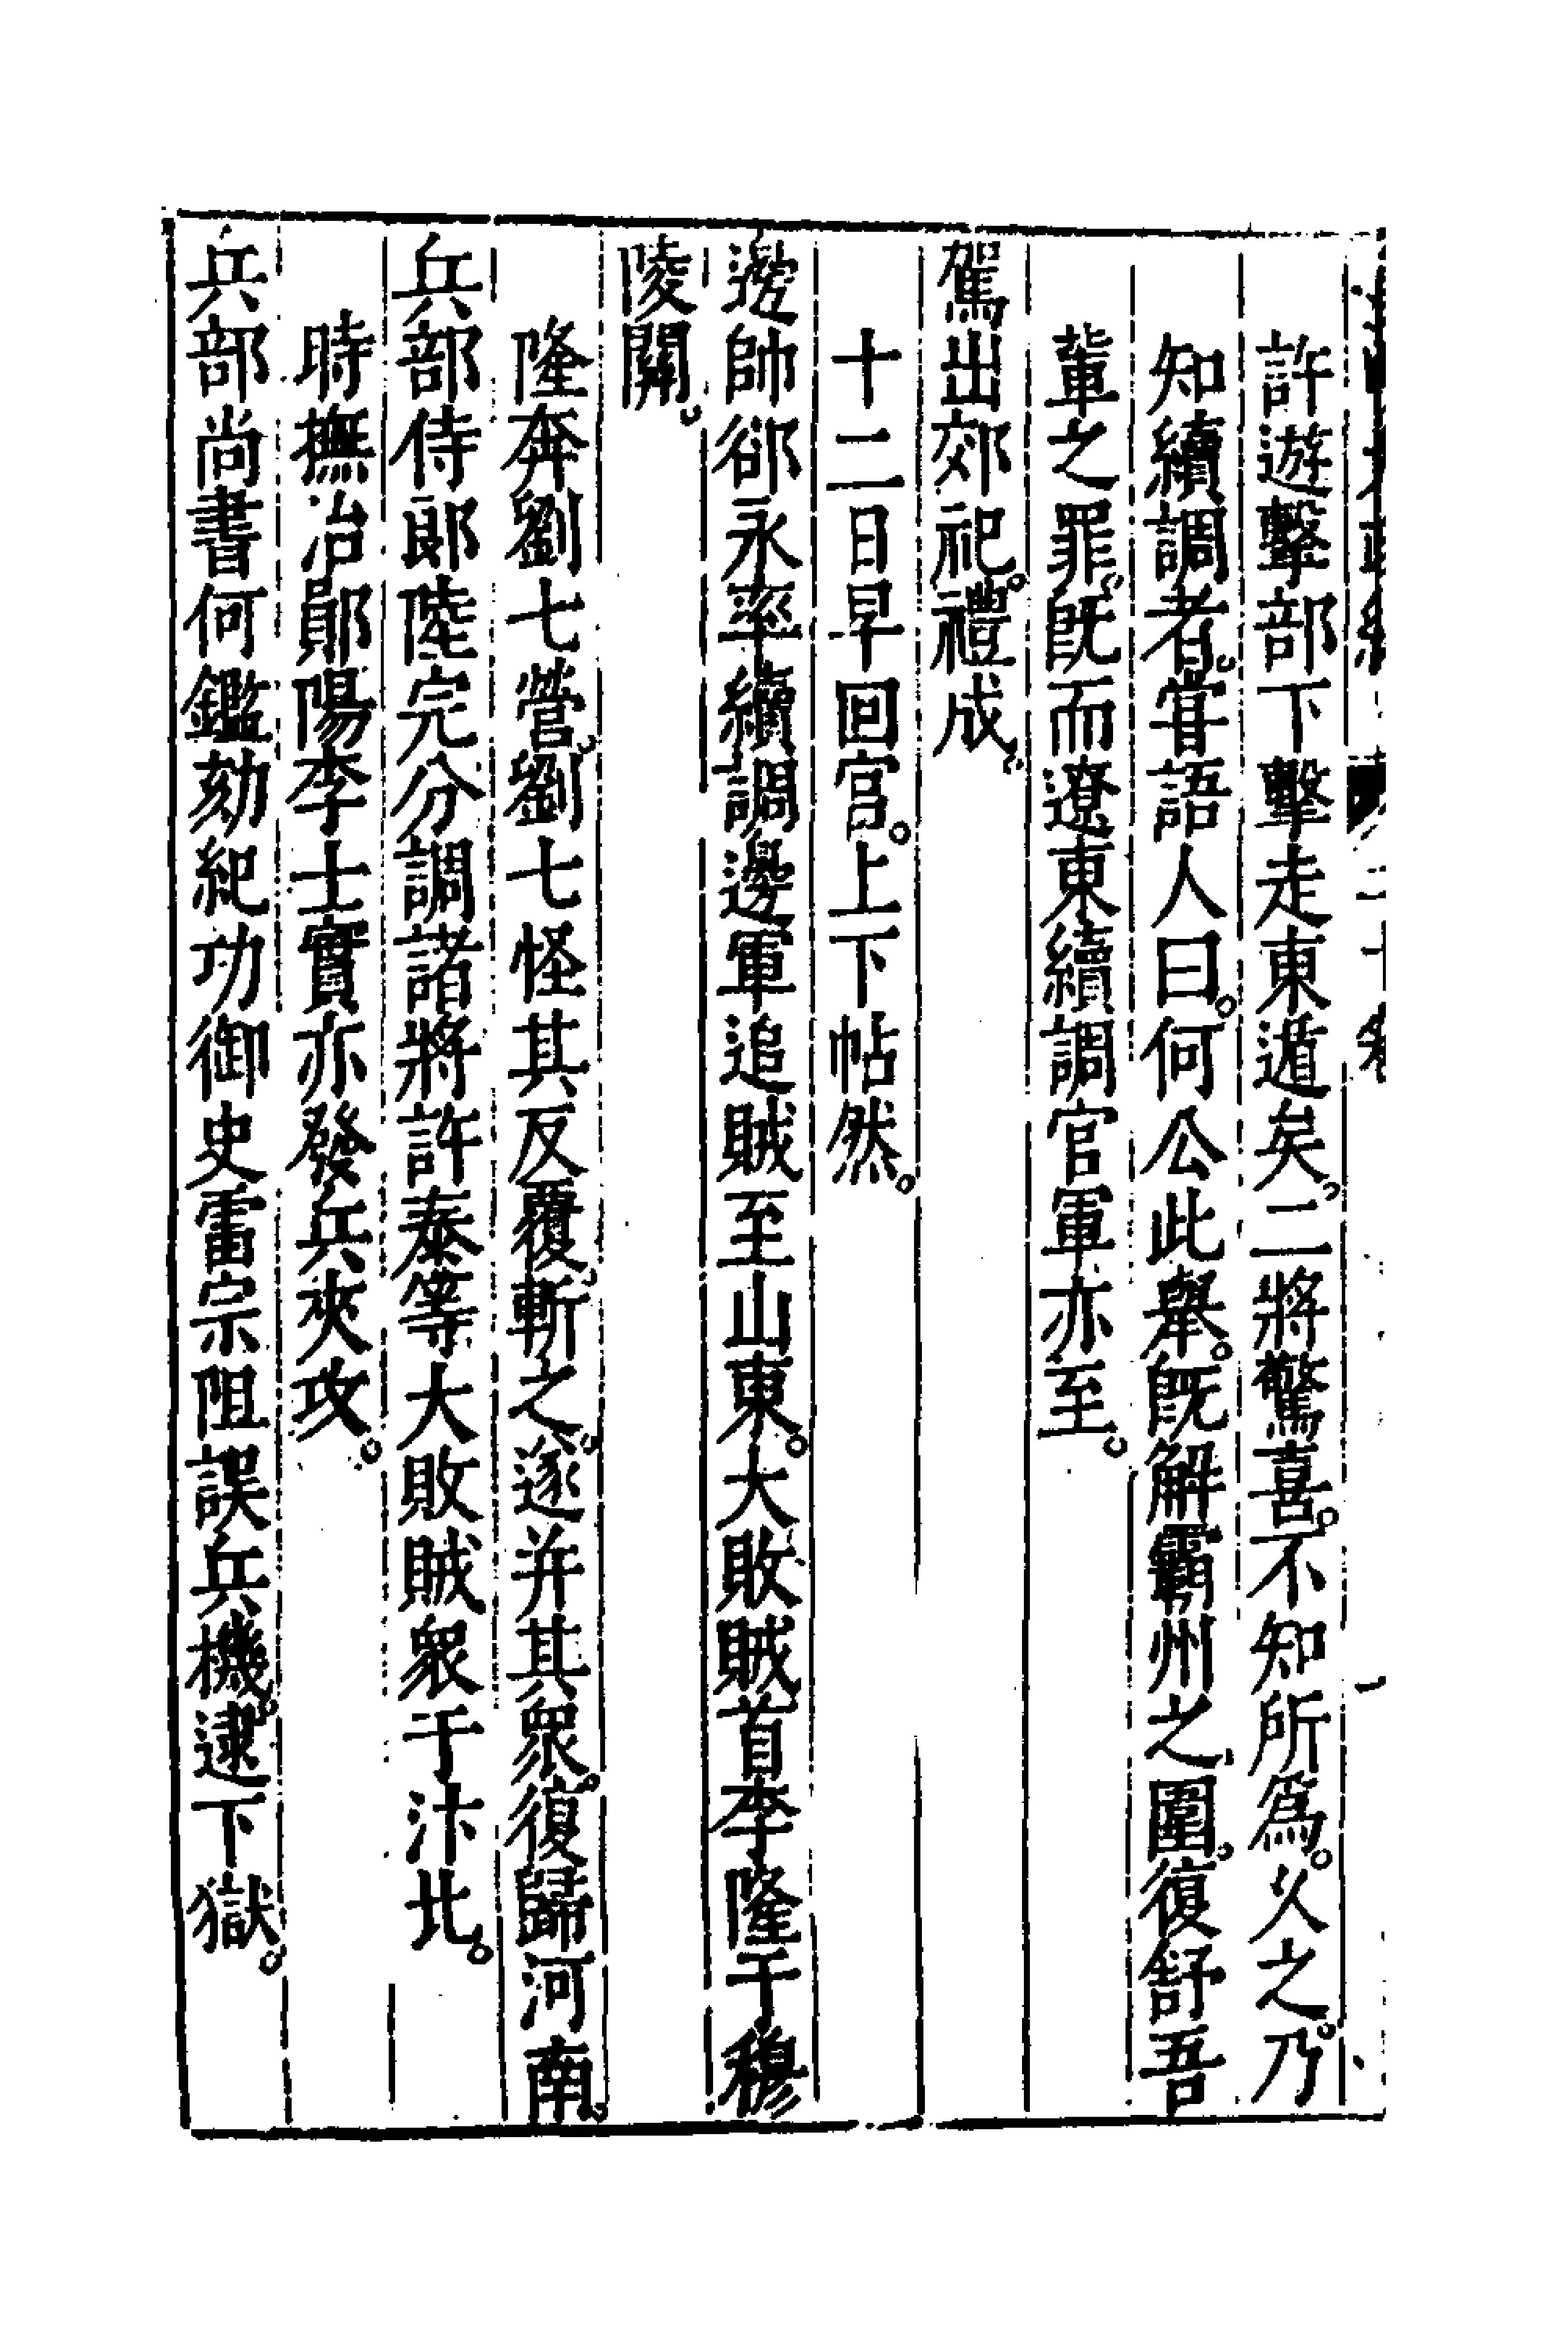 許遊擊部下擊走東遁矣二將驚喜。不知所爲。乆之。乃
知續調者。甞語人曰。何公此舉。旣解霸州之圍。復舒吾
輩之罪。旣而遼東續調官軍亦至。
駕出郊祀。禮成。
十二日早回宫。上下帖然。
邊帥郤永率續調邊軍追賊至山東。大敗賊首李隆于穆
陵關。
隆奔劉七營。劉七怪其反覆。斬之。遂并其衆。復歸河南。
兵部侍郎陸完分調諸將許泰等大敗賊衆于汴北。
時撫治鄖陽李士實亦發兵夾攻。
兵部尚書何鑑劾紀功御史雷宗阻誤兵機。逮下獄。